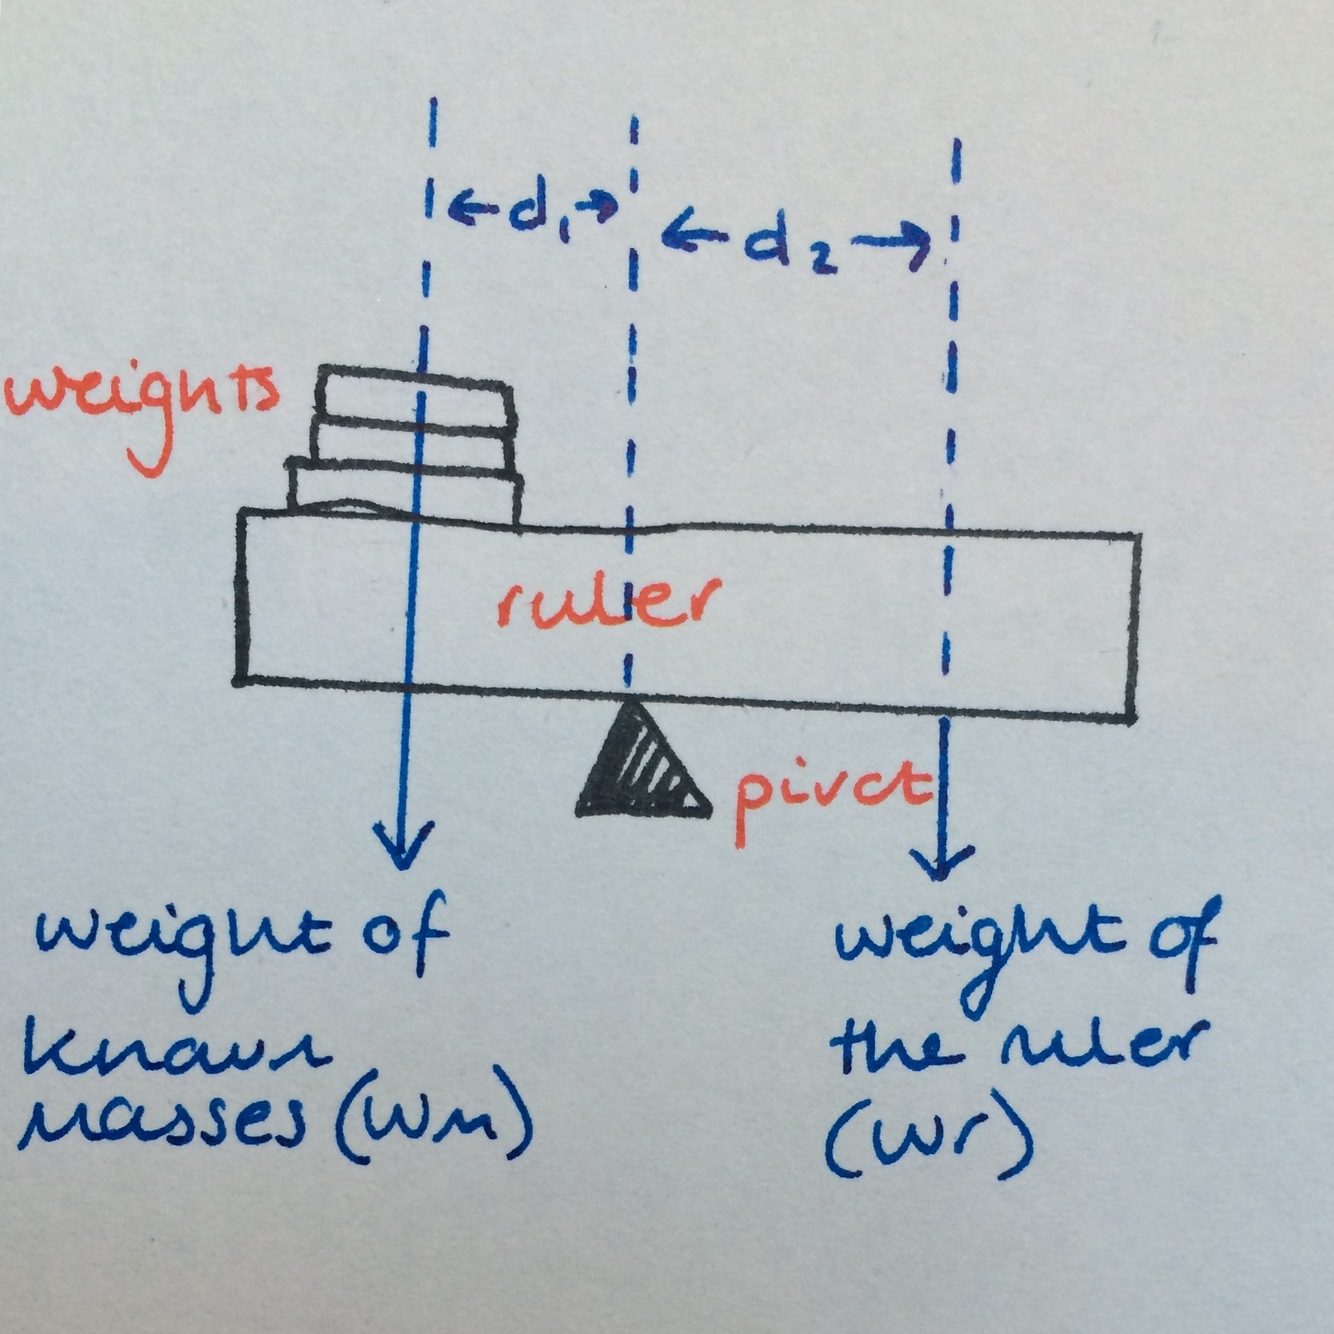 d₁
d₂
weights
ruler
pivot
weight of
known
masses (Wm)
weight of
the ruler
(Wr)